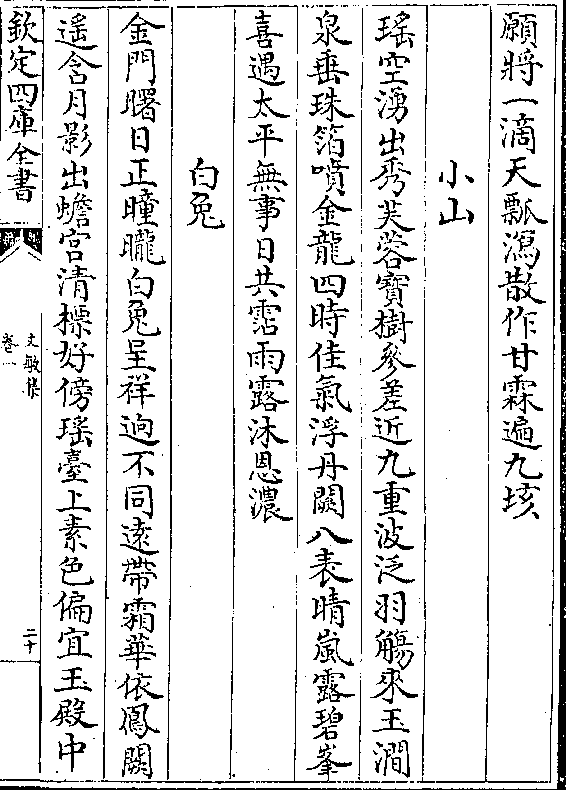 願將一滴天瓢瀉散作甘霖遍九垓
小山
瑤空湧出秀芙蓉寶樹參差近九重波泛羽觴來玉澗
泉垂珠箔噴金龍四時佳氣浮丹闕八表晴嵐露碧峯
喜遇太平無事日共霑雨露沐恩濃
白兔
金門曙日正曈曨白兔呈祥逈不同遠帶霜華依鳳闕
遥含月影出蟾宮清標好傍瑤臺上素色偏宜玉殿中
欽定四庫全書
文敏集
卷一
二十